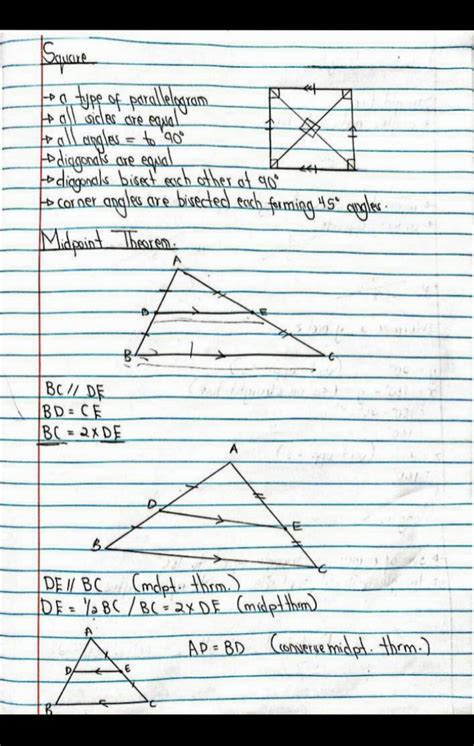 Square
→ a type of parallelogram
→ all sides are equal
→ all angles = to 90°
→ diagonals are equal
→ diagonals bisect each other at 90°
→ corner angles are bisected each forming 45° angles.
Midpoint Theorem.
A
D E
B C
BC // DE
BD = CE
BC = 2×DE
A
D
E
B
C
DE // BC (mdpt. thrm.)
DE = 1/2 BC / BC = 2×DE (midpt thm)
A
AD = BD (converse midpt. thrm.)
D E
B C